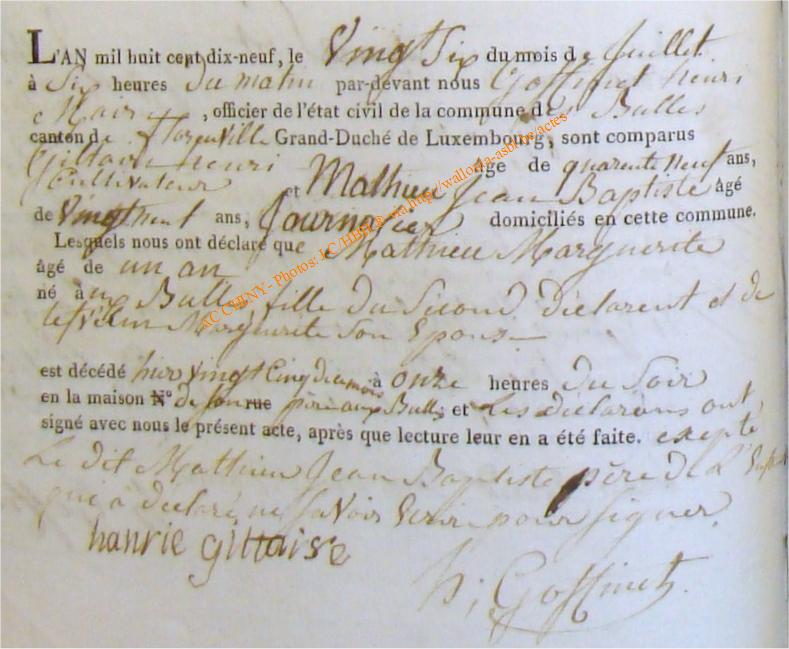 L'AN mil huit cent dix-neuf, le Vingt Six du mois de Juillet
à Six heures du matin par-devant nous Goffinet henri
Maire, officier de l'état civil de la commune des Bulles
canton de florenville Grand-Duché de Luxembourg, sont comparus
Giltaire henri âge de quarente neuf ans,
Cultivateur et Mathieu Jean Baptiste âgé
de Vingt neuf ans, Journalier domiciliés en cette commune.
Lesquels nous ont déclaré que Mathieu Marguerite
âgé de un an
né à aux Bulles, fille du Second Déclarent et de
Marguerite Son Epouse
est décédé hier vingt Cinq du mois à onze heures du Soir
en la maison N° de son rue père aux Bulles et Les déclarans ont
signé avec nous le présent acte, après que lecture leur en a été faite. excepté
Le dit Mathieu Jean Baptiste père de L'enfant
qui a déclaré ne Savoir Ecrire pour Signer
hanrie gittaire
h; Goffinet
ACCHENY - Photos: LC/HBH via http://wallonia-asbl.be/actes